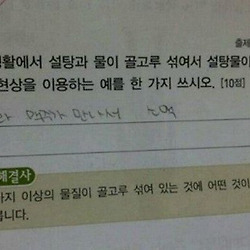 출제
활에서 설탕과 물이 골고루 섞여서 설탕물이
현상을 이용하는 예를 한 가지 쓰시오. [10점]
만나서
해결사
가지 이상의 물질이 골고루 섞여 있는 것에 어떤 것이
릅니다.